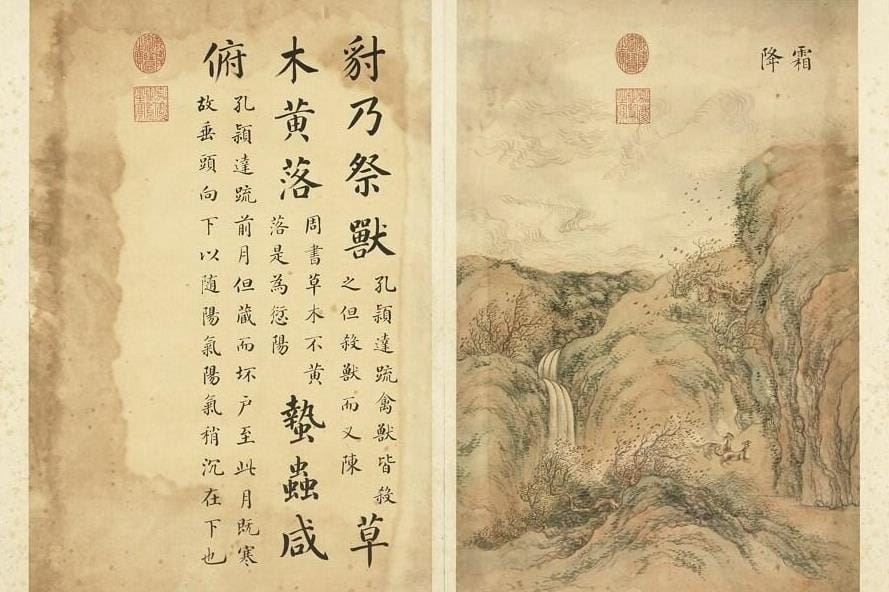 霜降
豺乃祭獸
孔穎達疏禽獸皆殺
之但殺獸而又陳
草
木黄落
周書草木不黄
落是為愆陽
蟄蟲咸
俯
孔穎達疏前月但蔵而坏戶至此月既寒
故垂頭向下以随陽氣陽氣稍沉在下也